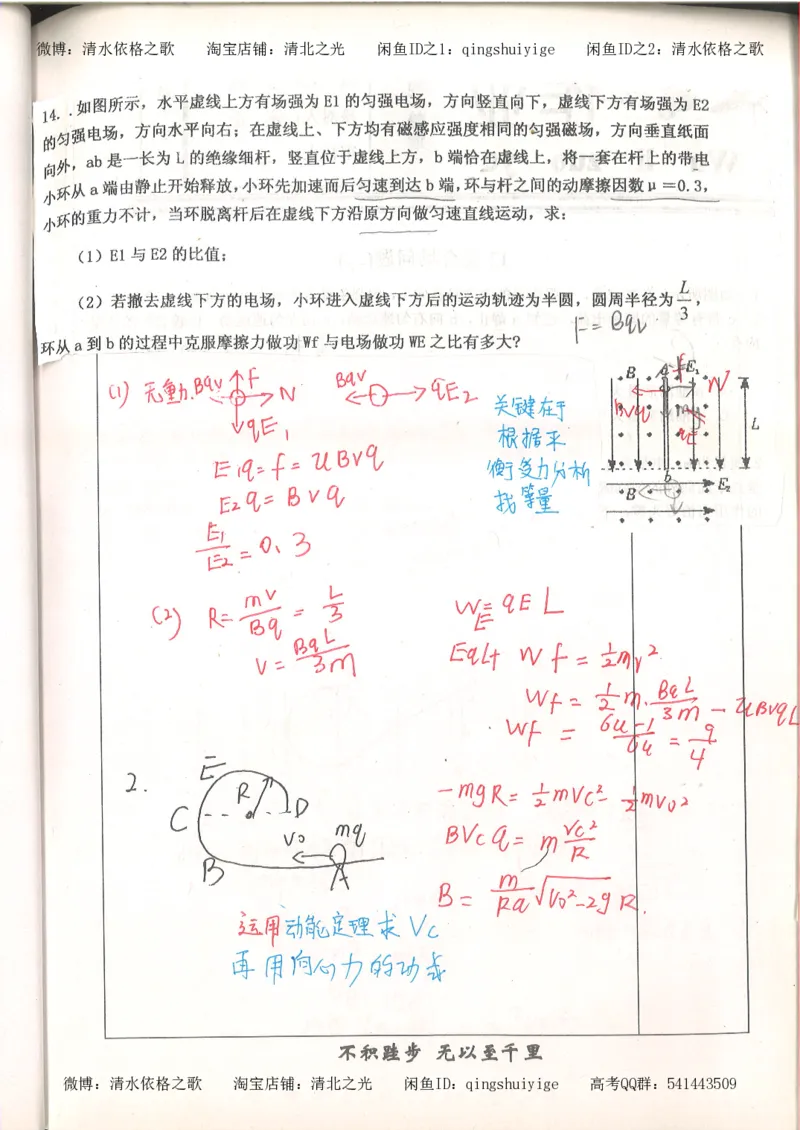 微博：清水依格之歌 淘宝店铺：清北之光 闲鱼ID之1：qingshuiyige 闲鱼ID之2：清水依格之歌
14. .如图所示，水平虚线上方有场强为 E1 的匀强电场，方向竖直向下，虚线下方有场强为 E2
的匀强电场，方向水平向右；在虚线上、下方均有磁感应强度相同的匀强磁场，方向垂直纸面
向外，ab 是一长为 L 的绝缘细杆，竖直位于虚线上方，b 端恰在虚线上，将一套在杆上的带电
小环从 a 端由静止开始释放，小环先加速而后匀速到达 b 端，环与杆之间的动摩擦因数 μ＝0.3，
小环的重力不计，当环脱离杆后在虚线下方沿原方向做匀速直线运动，求：
（1）E1 与 E2 的比值；
（2）若撤去虚线下方的电场，小环进入虚线下方后的运动轨迹为半圆，圆周半径为 L/3，
F = Bqv
环从 a 到 b 的过程中克服摩擦力做功 Wf 与电场做功 WE 之比有多大？
(1) 无動. Bqv f N qE₁
Bqv qE₂
E₁q = f = uBvq
E₂q = Bvq
E₁/E₂ = 0.3
关键在于
根据平
衡受力分析
找等量
B f E₁ N
Bvq qE
L
b
B E₂
(2) R = mv/Bq = L/3
v = BqL/3m
W_E = qEL
EqL+ Wf = ½mv²
Wf = ½m·BqL/3m - uBvqL
Wf = 6u-1/6u = 9/4
2.
E R D C
v₀ mq
B A
-mgR = ½mVc² - ½mv₀²
BVcq = m Vc²/R
B = m/Rq √V₀²-2gR.
运用动能定理求 Vc
再用向心力的功求
不积跬步 无以至千里
微博：清水依格之歌 淘宝店铺：清北之光 闲鱼ID：qingshuiyige 高考QQ群：541443509